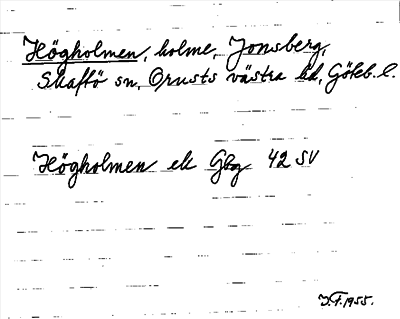 Högholmen, holme, Jonsberg,
Skaftö sn, Orusts västra hd, Göteb. l.
Högholmen ek Gbg 42 SV
J.F. 1955.